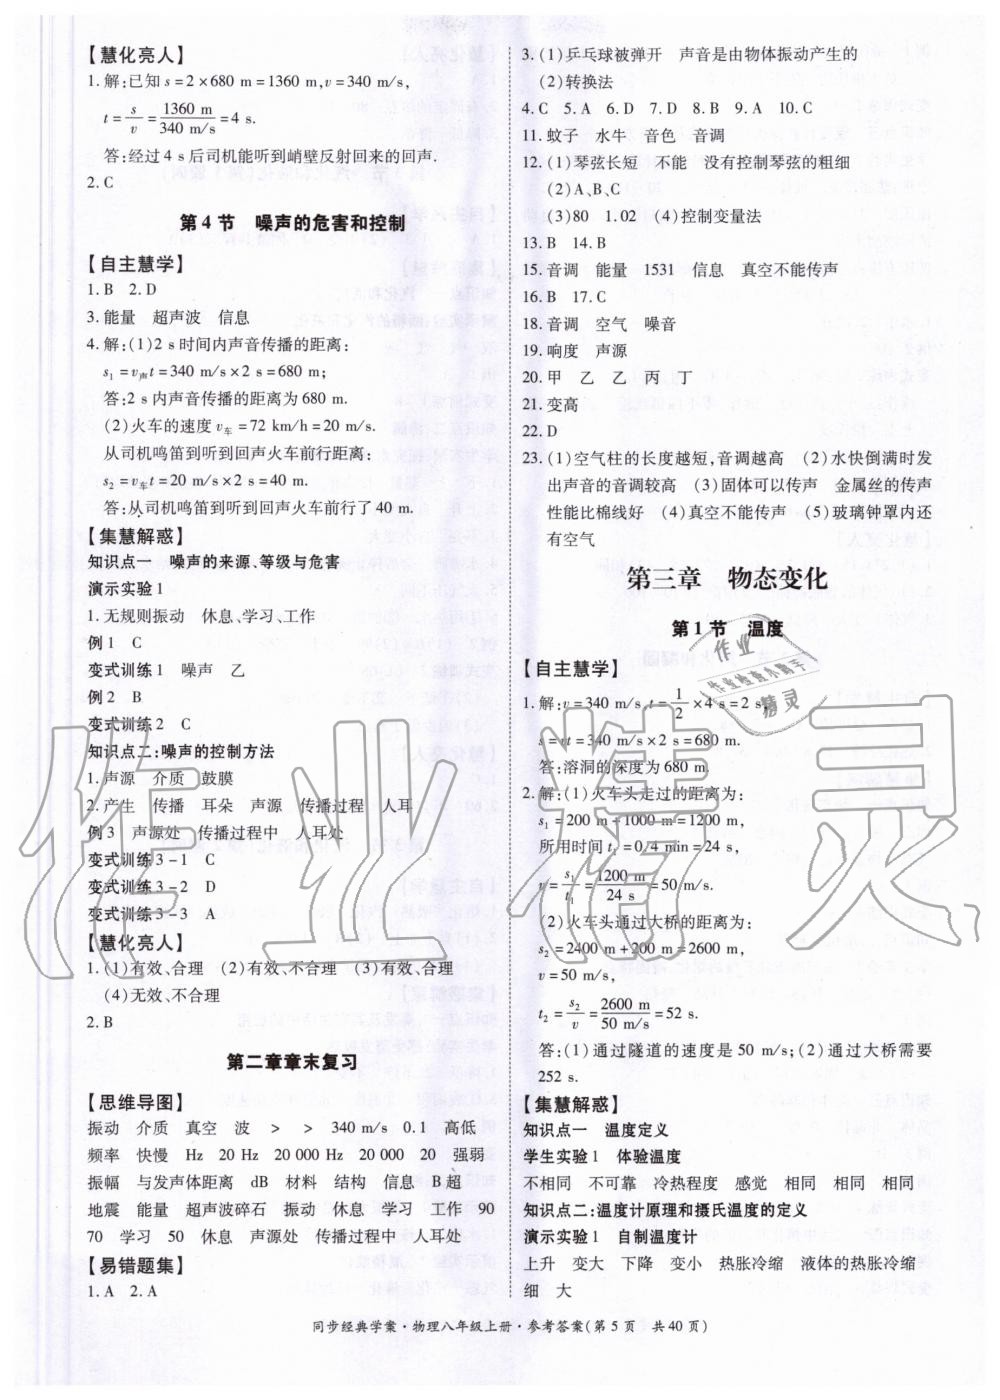 【慧化亮人】
1.解:已知 s=2×680 m=1360 m,v=340 m/s,
t=s/v=1360 m/340 m/s=4 s.
答:经过4 s后司机能听到峭壁反射回来的回声.
2.C
第4节 噪声的危害和控制
【自主慧学】
1.B 2.D
3.能量 超声波 信息
4.解:(1)2 s时间内声音传播的距离:
s₁=v声t=340 m/s×2 s=680 m;
答:2 s内声音传播的距离为680 m.
(2)火车的速度v车=72 km/h=20 m/s.
从司机鸣笛到听到回声火车前行距离:
s₂=v车t=20 m/s×2 s=40 m.
答:从司机鸣笛到听到回声火车前行了40 m.
【集慧解惑】
知识点一 噪声的来源、等级与危害
演示实验1
1.无规则振动 休息、学习、工作
例1 C
变式训练1 噪声 乙
例2 B
变式训练2 C
知识点二:噪声的控制方法
1.声源 介质 鼓膜
2.产生 传播 耳朵 声源 传播过程 人耳
例3 声源处 传播过程中 人耳处
变式训练3-1 C
变式训练3-2 D
变式训练3-3 A
【慧化亮人】
1.(1)有效、合理 (2)有效、不合理 (3)有效、合理
(4)无效、不合理
2.B
第二章章末复习
【思维导图】
振动 介质 真空 波 > > 340 m/s 0.1 高低
频率 快慢 Hz 20 Hz 20 000 Hz 20 000 20 强弱
振幅 与发声体距离 dB 材料 结构 信息 B超
地震 能量 超声波碎石 振动 休息 学习 工作 90
70 学习 50 休息 声源处 传播过程中 人耳处
【易错题集】
1.A 2.A
3.(1)乒乓球被弹开 声音是由物体振动产生的
(2)转换法
4.C 5.A 6.D 7.D 8.B 9.A 10.C
11.蚊子 水牛 音色 音调
12.(1)琴弦长短 不能 没有控制琴弦的粗细
(2)A、B、C
(3)80 1.02 (4)控制变量法
13.B 14.B
15.音调 能量 1531 信息 真空不能传声
16.B 17.C
18.音调 空气 噪音
19.响度 声源
20.甲 乙 乙 丙 丁
21.变高
22.D
23.(1)空气柱的长度越短,音调越高 (2)水快倒满时发
出声音的音调较高 (3)固体可以传声 金属丝的传声
性能比棉线好 (4)真空不能传声 (5)玻璃钟罩内还
有空气
第三章 物态变化
第1节 温度
【自主慧学】
1.解:v=340 m/s,t=1/2×4 s=2 s,
s=vt=340 m/s×2 s=680 m.
答:溶洞的深度为680 m.
2.解:(1)火车头走过的距离为:
s₁=200 m+1000 m=1200 m,
所用时间t₁=0.4 min=24 s,
v=s₁/t₁=1200 m/24 s=50 m/s.
(2)火车头通过大桥的距离为:
s₂=2400 m+200 m=2600 m,
v=50 m/s,
t₂=s₂/v=2600 m/50 m/s=52 s.
答:(1)通过隧道的速度是50 m/s;(2)通过大桥需要
252 s.
【集慧解惑】
知识点一 温度定义
学生实验1 体验温度
不相同 不可靠 冷热程度 感觉 相同 相同 相同
知识点二:温度计原理和摄氏温度的定义
演示实验1 自制温度计
上升 变大 下降 变小 热胀冷缩 液体的热胀冷缩
细 大
同步经典学案·物理八年级上册·参考答案(第5页 共40页)
作业精灵
作业
作业检查小助手
精灵